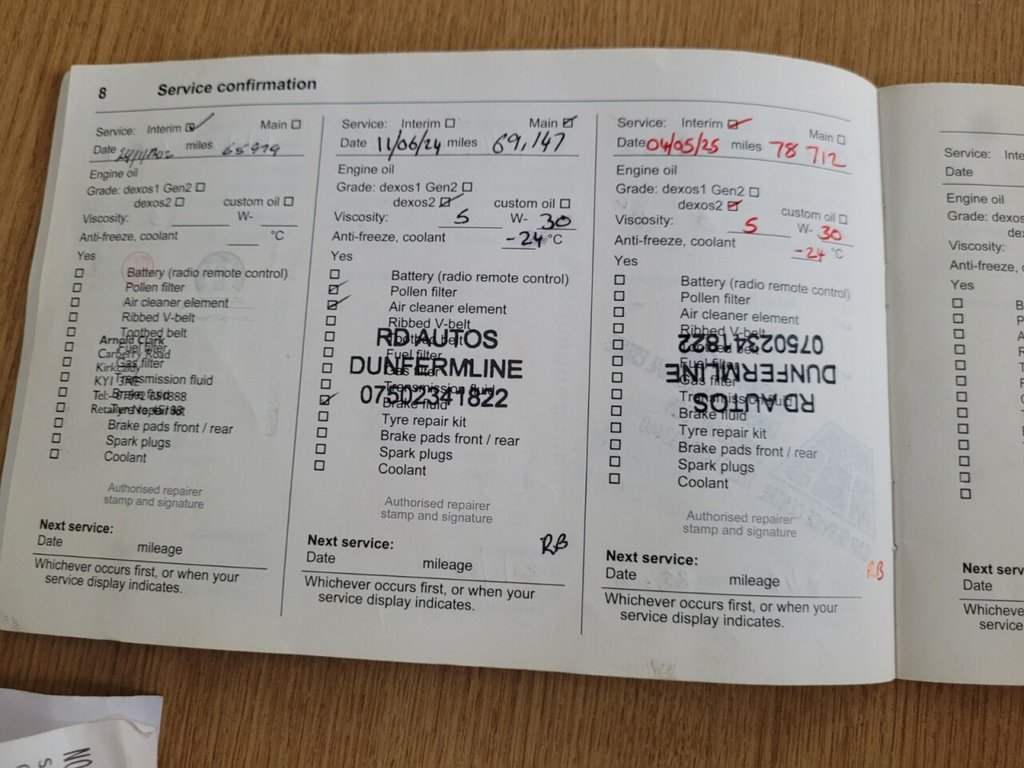 8 Service confirmation
Service: Interim Main
miles 65979
Engine oil
Grade: dexos1 Gen2
dexos2 custom oil
Viscosity: W-
Anti-freeze, coolant °C
Yes
Battery (radio remote control)
Pollen filter
Air cleaner element
Ribbed V-belt
Toothed belt
Arnold Clark
Fuel filter
Carberry Road
Gas filter
Kirkcaldy
Transmission fluid
KY1
Brake fluid
Tyre repair kit
Brake pads front / rear
Spark plugs
Coolant
Authorised repairer
stamp and signature
Next service:
Date mileage
Whichever occurs first, or when your
service display indicates.
Service: Interim Main
Date 11/06/24 miles 69,147
Engine oil
Grade: dexos1 Gen2
dexos2 custom oil
Viscosity: 5 W- 30
Anti-freeze, coolant -24 °C
Yes
Battery (radio remote control)
Pollen filter
Air cleaner element
Ribbed V-belt
RD AUTOS
Toothed belt
Fuel filter
DUNFERMLINE
Gas filter
Transmission fluid
07502341822
Brake fluid
Tyre repair kit
Brake pads front / rear
Spark plugs
Coolant
Authorised repairer
stamp and signature
Next service: RB
Date mileage
Whichever occurs first, or when your
service display indicates.
Service: Interim Main
Date 04/05/25 miles 78 712
Engine oil
Grade: dexos1 Gen2
dexos2 custom oil
Viscosity: 5 W- 30
Anti-freeze, coolant -24 °C
Yes
Battery (radio remote control)
Pollen filter
Air cleaner element
Ribbed V-belt
07502341822
Fuel filter
DUNFERMLINE
Gas filter
RD AUTOS
Brake fluid
Tyre repair kit
Brake pads front / rear
Spark plugs
Coolant
Authorised repairer
stamp and signature
Next service:
Date mileage RB
Whichever occurs first, or when your
service display indicates.
Service: Inte
Date
Engine oil
Grade: dexos
de
Viscosity:
Anti-freeze, c
Yes
Next serv
Date
Whichever
service
NO